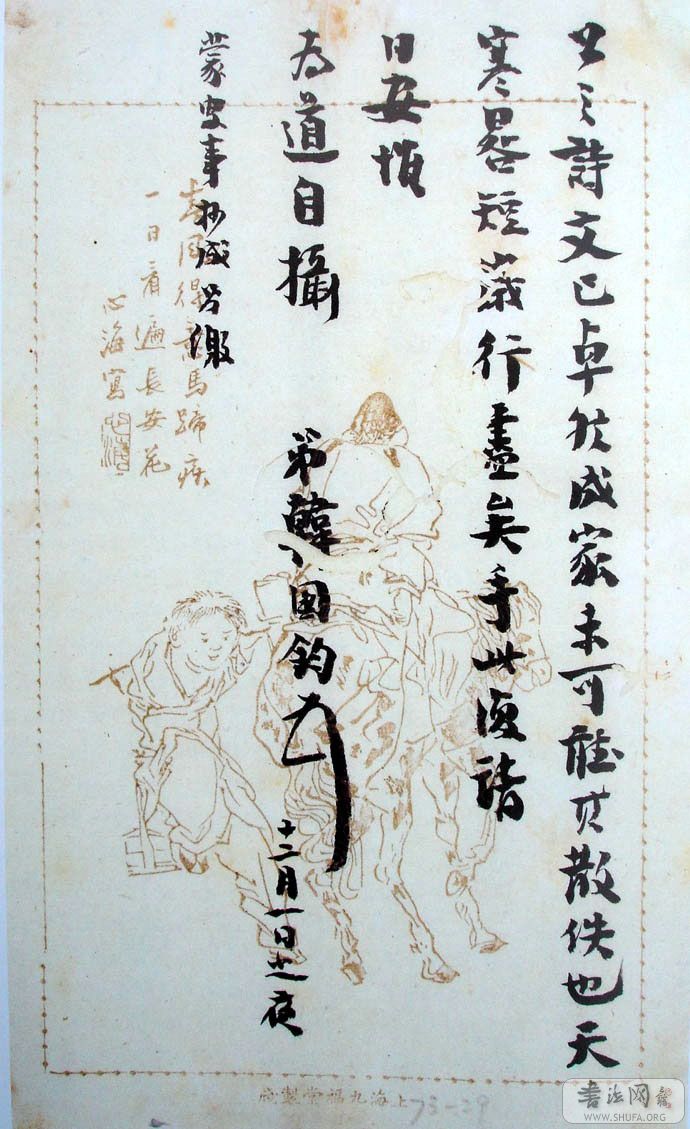 之詩文已卓然成家未可聽其散佚也天
寒晷短歲行盡矣手此復請
日安惟
為道自攝
弟韓國鈞
十二月一日之夜
蒙叟事抄成另繳
春風得意馬蹄疾
一日看遍長安花
心海寫
上海九福堂製
73-29
书法网
WWW.SHUFA.ORG